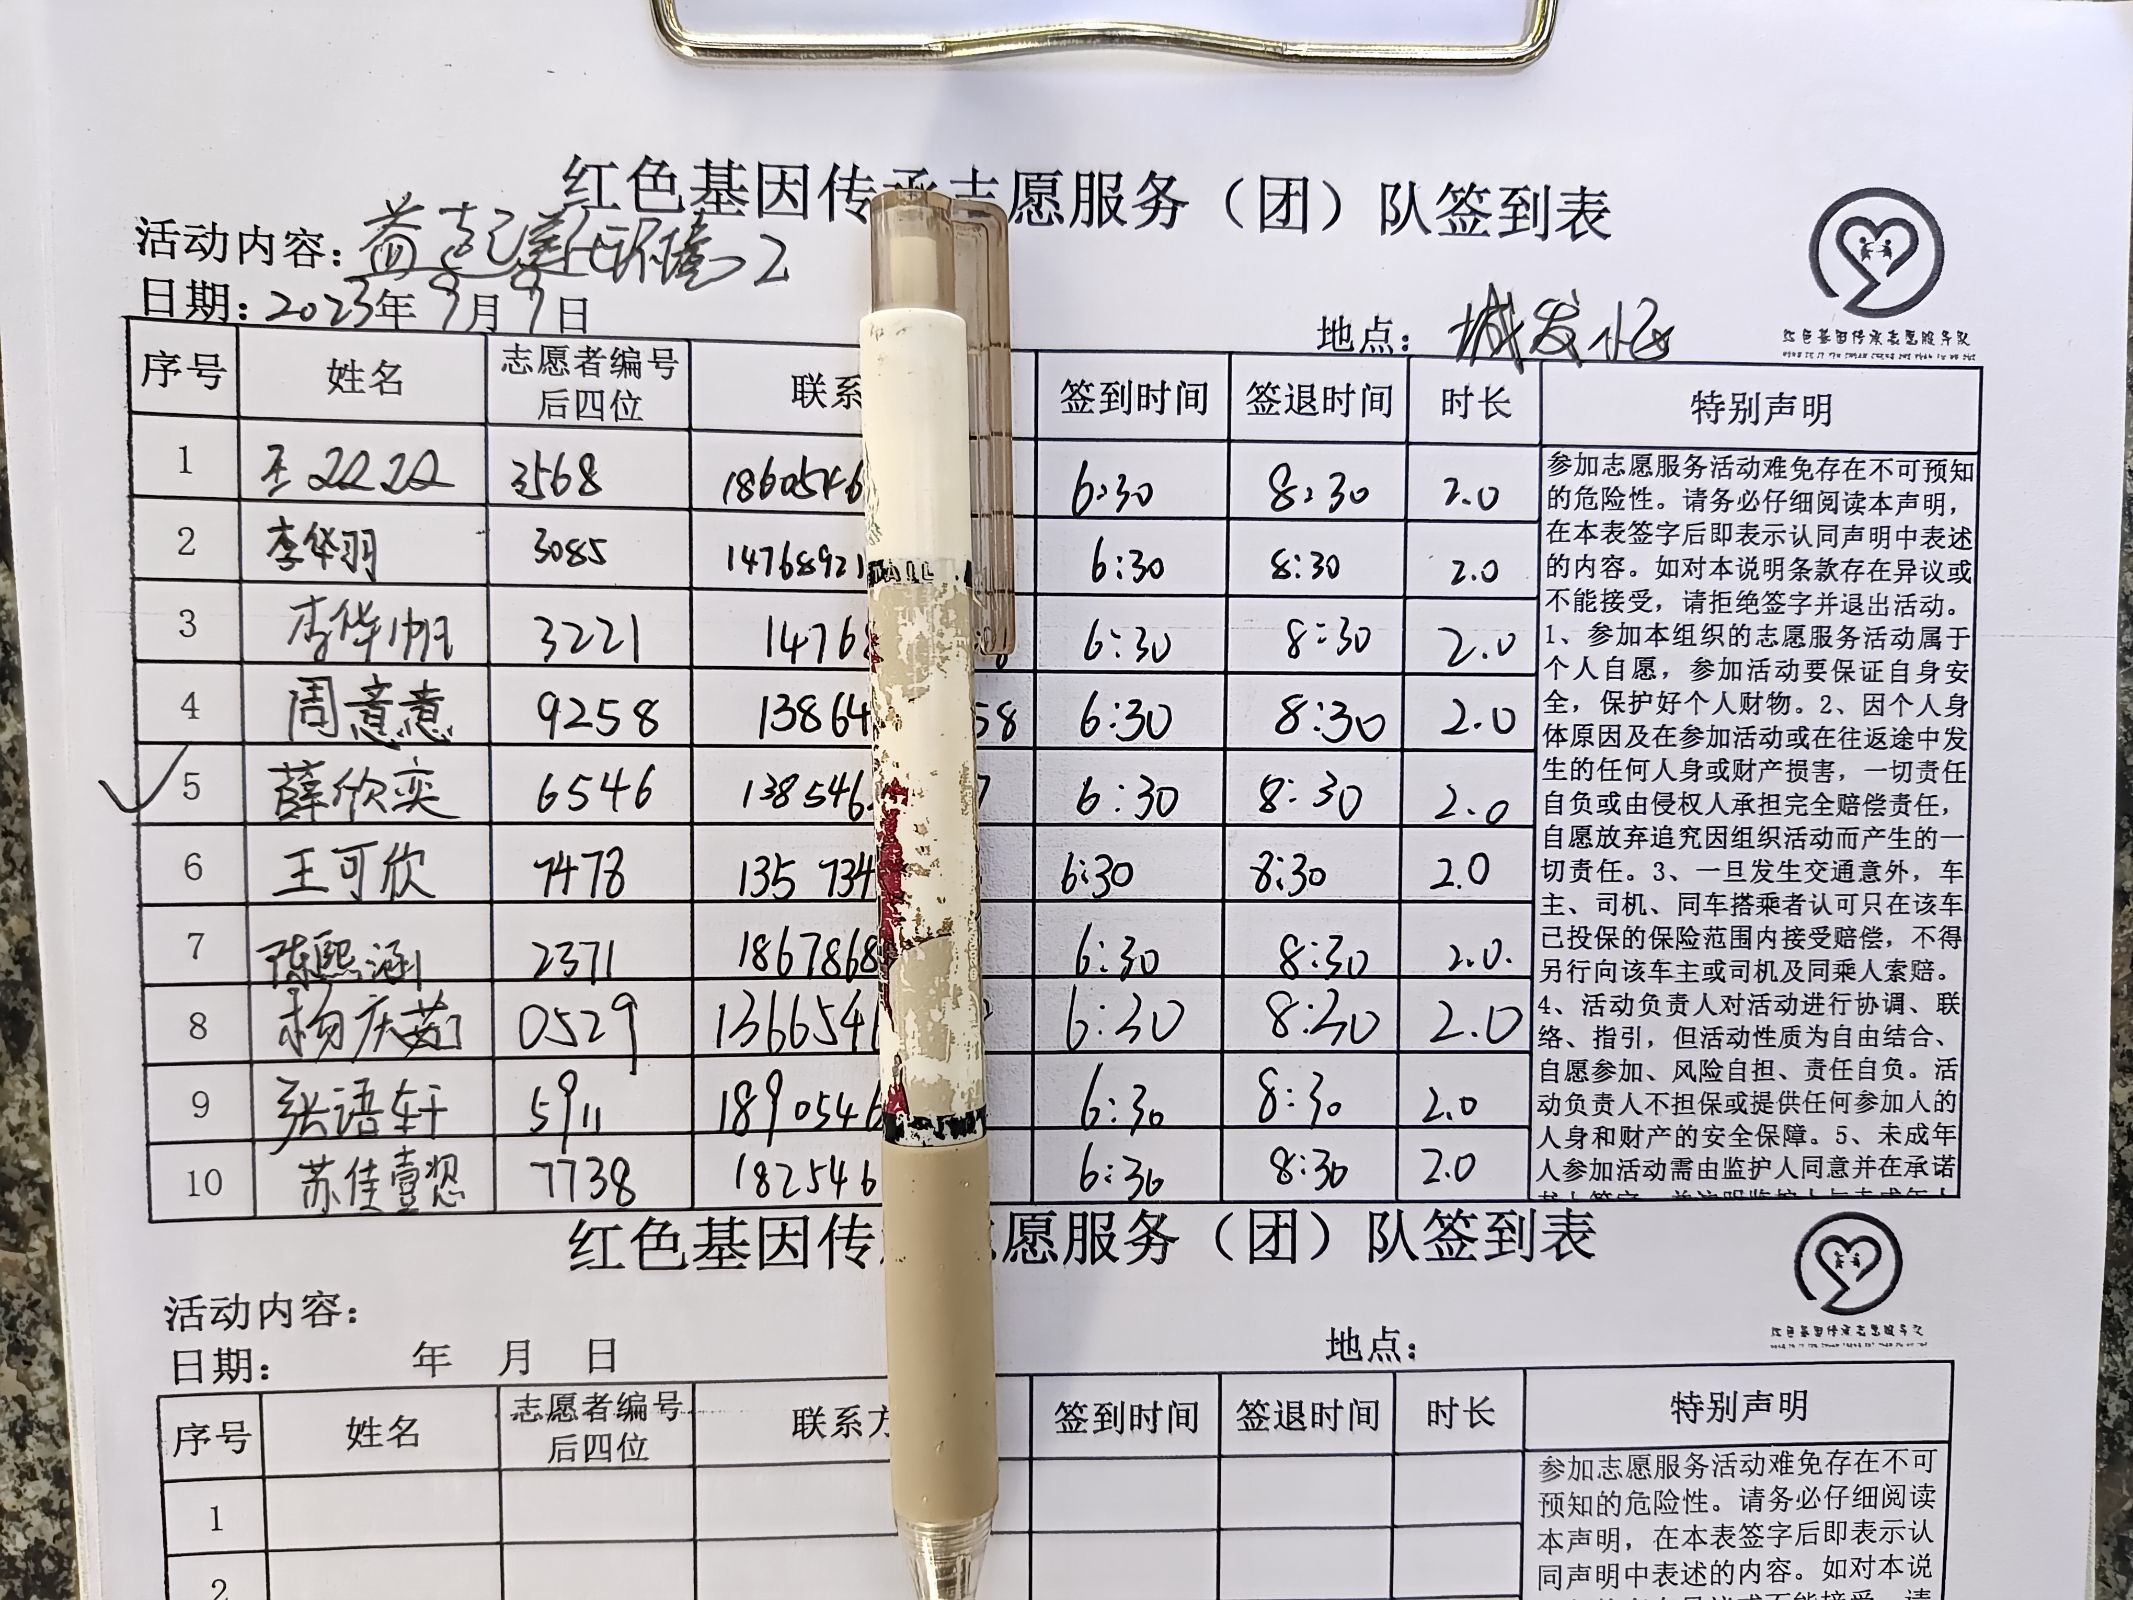 红色基因传承志愿服务（团）队签到表
活动内容：益起
日期：2023年9月9日
地点：城发小区
红色基因传承志愿服务队
序号 姓名 志愿者编号后四位 联系 签到时间 签退时间 时长 特别声明
1 王 3568 1860546 6:30 8:30 2.0
2 李华羽 3085 14768921 6:30 8:30 2.0
3 李华帆 3221 1476 6:30 8:30 2.0
4 周意意 9258 13864 58 6:30 8:30 2.0
5 薛欣奕 6546 138546 7 6:30 8:30 2.0
6 王可欣 7478 135 734 6:30 8:30 2.0
7 陈熙涵 2371 1867868 6:30 8:30 2.0.
8 杨庆茹 0529 1366546 6:30 8:30 2.0
9 张语轩 5911 1890546 6:30 8:30 2.0
10 苏佳壹 7738 182546 6:30 8:30 2.0
参加志愿服务活动难免存在不可预知
的危险性。请务必仔细阅读本声明，
在本表签字后即表示认同声明中表述
的内容。如对本说明条款存在异议或
不能接受，请拒绝签字并退出活动。
1、参加本组织的志愿服务活动属于
个人自愿，参加活动要保证自身安
全，保护好个人财物。2、因个人身
体原因及在参加活动或在往返途中发
生的任何人身或财产损害，一切责任
自负或由侵权人承担完全赔偿责任，
自愿放弃追究因组织活动而产生的一
切责任。3、一旦发生交通意外，车
主、司机、同车搭乘者认可只在该车
已投保的保险范围内接受赔偿，不得
另行向该车主或司机及同乘人索赔。
4、活动负责人对活动进行协调、联
络、指引，但活动性质为自由结合、
自愿参加、风险自担、责任自负。活
动负责人不担保或提供任何参加人的
人身和财产的安全保障。5、未成年
人参加活动需由监护人同意并在承诺
红色基因传 愿服务（团）队签到表
活动内容：
日期： 年 月 日
地点：
红色基因传承志愿服务队
序号 姓名 志愿者编号后四位 联系方 签到时间 签退时间 时长 特别声明
1
2
参加志愿服务活动难免存在不可
预知的危险性。请务必仔细阅读
本声明，在本表签字后即表示认
同声明中表述的内容。如对本说